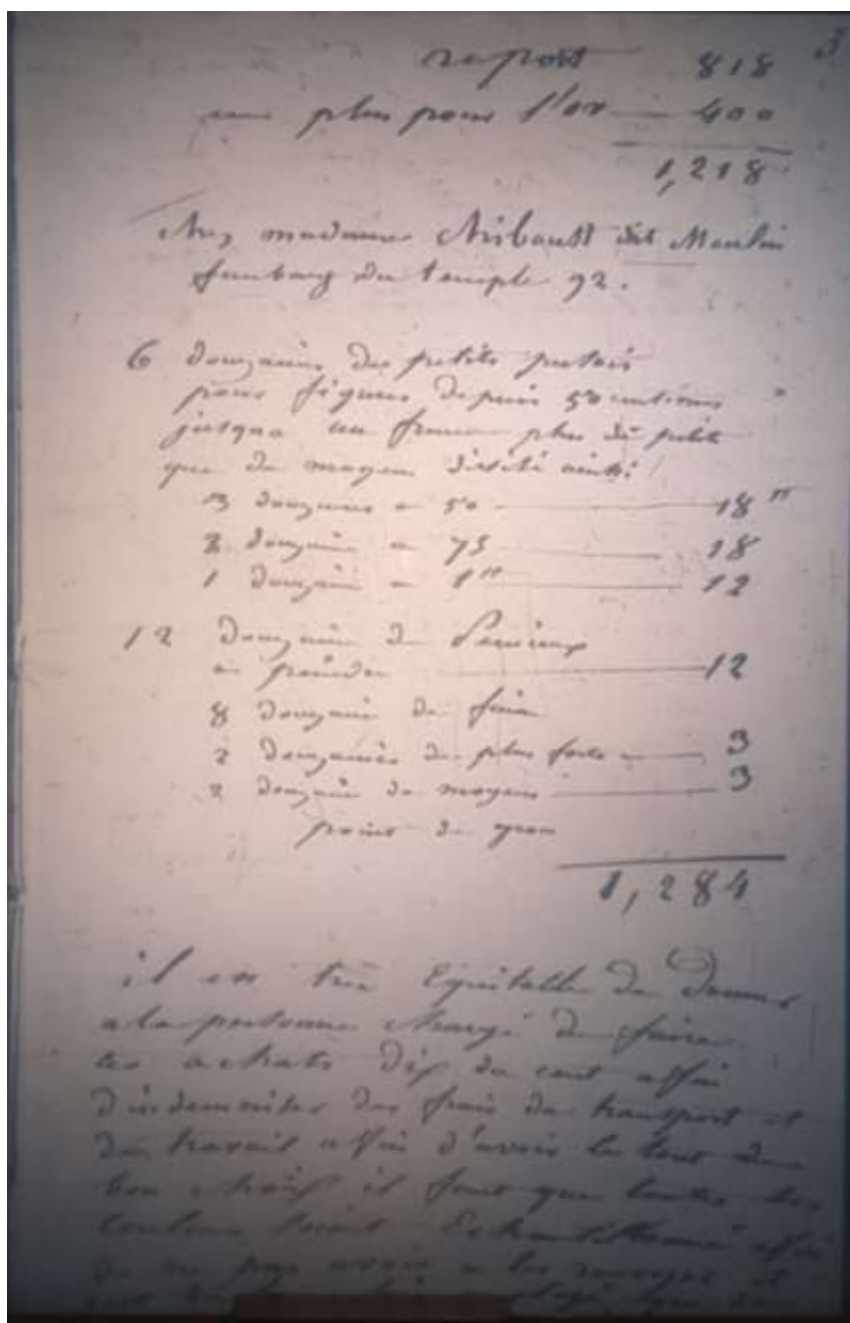 3
report 818
plus pour l'or — 400
1,218
chez madame Thibault dit Moulin
faubourg du temple 92.
6 douzaines de petits
pour figures depuis 50 centimes
jusqua un franc plus de petits
que de moyen ainsi
3 douzaines a 50 — 18 fr
2 douzaine a 75 — 18
1 douzaine a 1 fr — 12
12 douzaine de Pinceaux
a — 12
8 douzaine de fin
2 douzaines de plus forts — 3
2 douzaine de moyens — 3
point de gros
1,284
il est très Equitable de donner
a la personne chargé de faire
les achats dix du cent affin
d'indemniser des frais de transport et
du travail affin d'avoir le tout de
bon choix il faut que toutes les
couleurs soient Echantillonné affin
de ne pas avoir a les